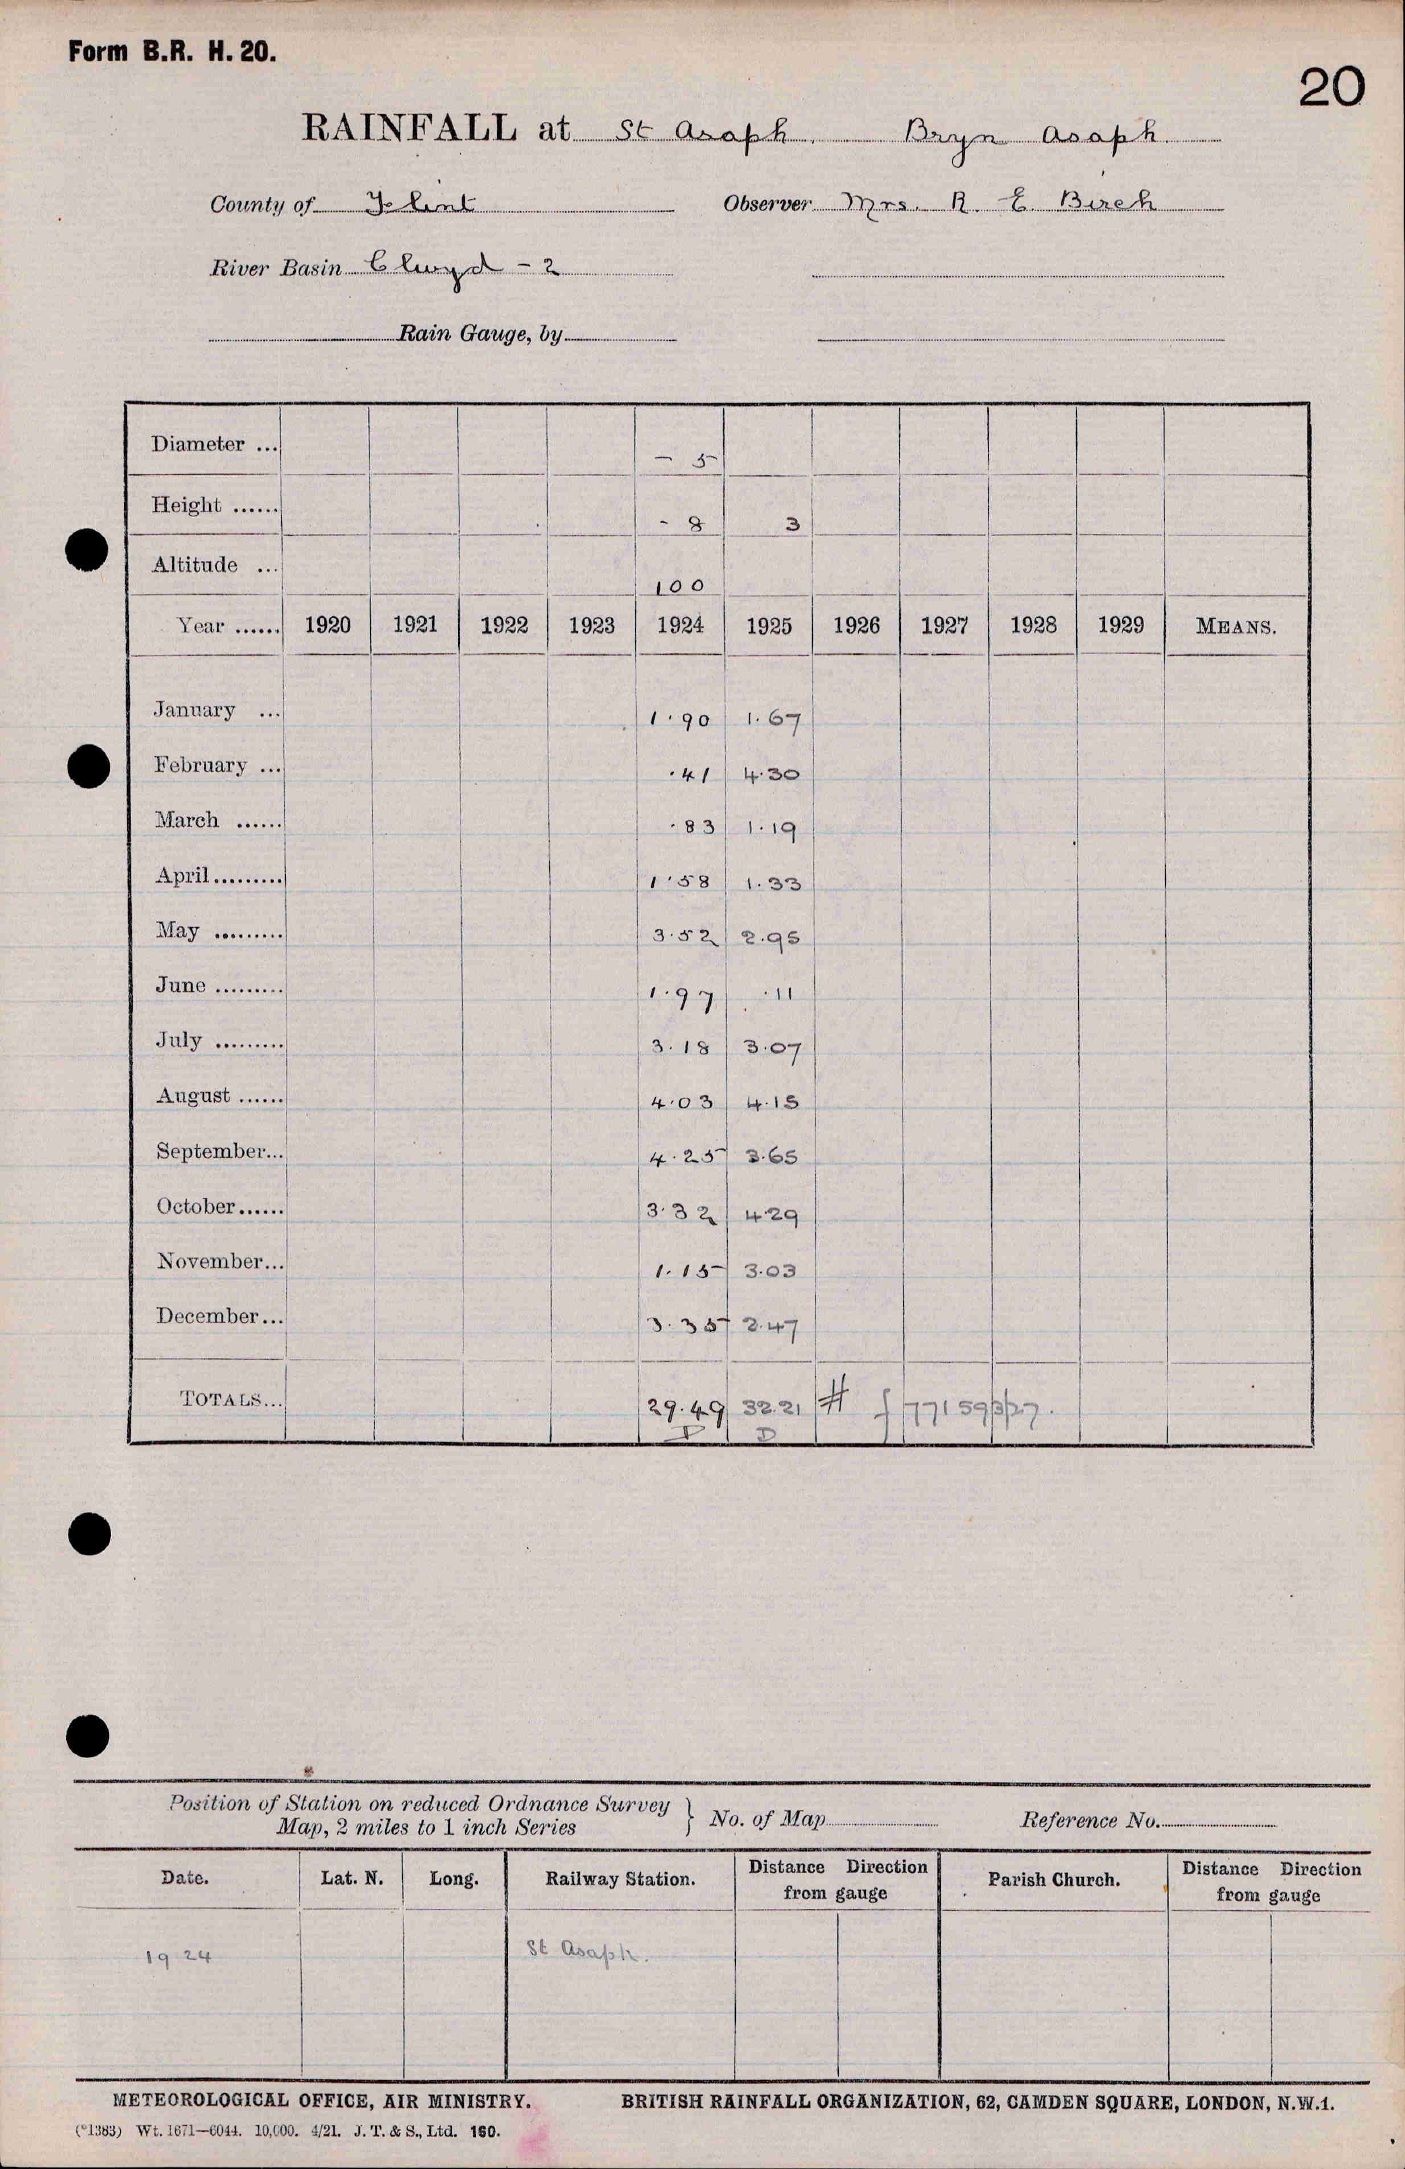 Form B.R. H. 20.
20
RAINFALL at St Asaph. Bryn Asaph
County of Flint Observer Mrs. R. E. Birch
River Basin Clwyd - 2
Rain Gauge, by
Diameter ... - 5
Height ...... - 8 3
Altitude ... 100
Year ...... 1920 1921 1922 1923 1924 1925 1926 1927 1928 1929 MEANS.
January ... 1.90 1.67
February ... .41 4.30
March ...... .83 1.19
April ......... 1.58 1.33
May ......... 3.52 2.95
June ......... 1.97 .11
July ......... 3.18 3.07
August ...... 4.03 4.15
September... 4.25 3.65
October...... 3.32 4.29
November... 1.15 3.03
December... 3.35 2.47
TOTALS... 29.49 32.21 # 771593/27.
D D
Position of Station on reduced Ordnance Survey
Map, 2 miles to 1 inch Series } No. of Map Reference No.
Date. Lat. N. Long. Railway Station. Distance Direction from gauge Parish Church. Distance Direction from gauge
1924 St Asaph.
METEOROLOGICAL OFFICE, AIR MINISTRY. BRITISH RAINFALL ORGANIZATION, 62, CAMDEN SQUARE, LONDON, N.W.1.
(*1383) Wt. 1671—6044. 10,000. 4/21. J. T. & S., Ltd. 160.